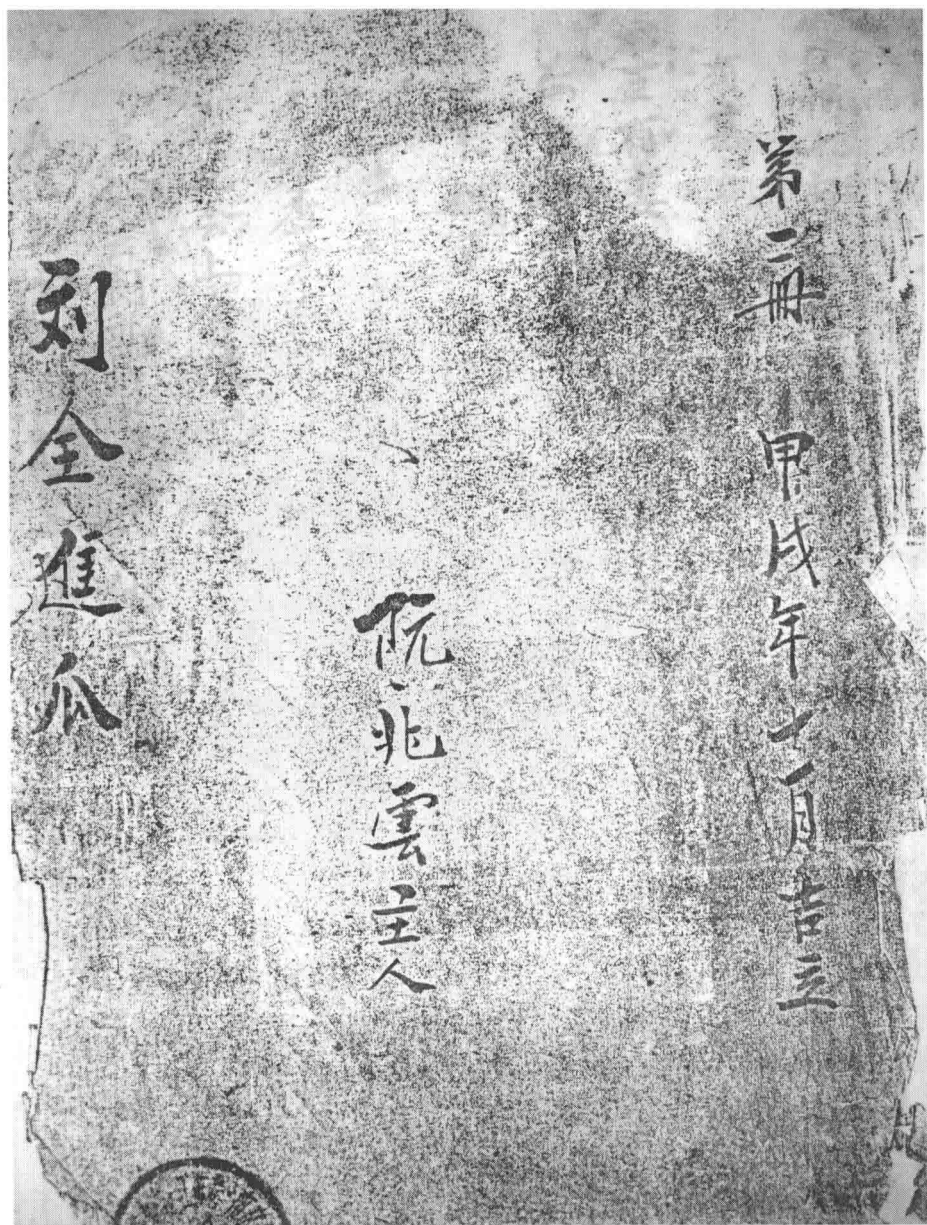 第二冊 甲戌年十一月吉立
阮兆雲主人
刘全進瓜